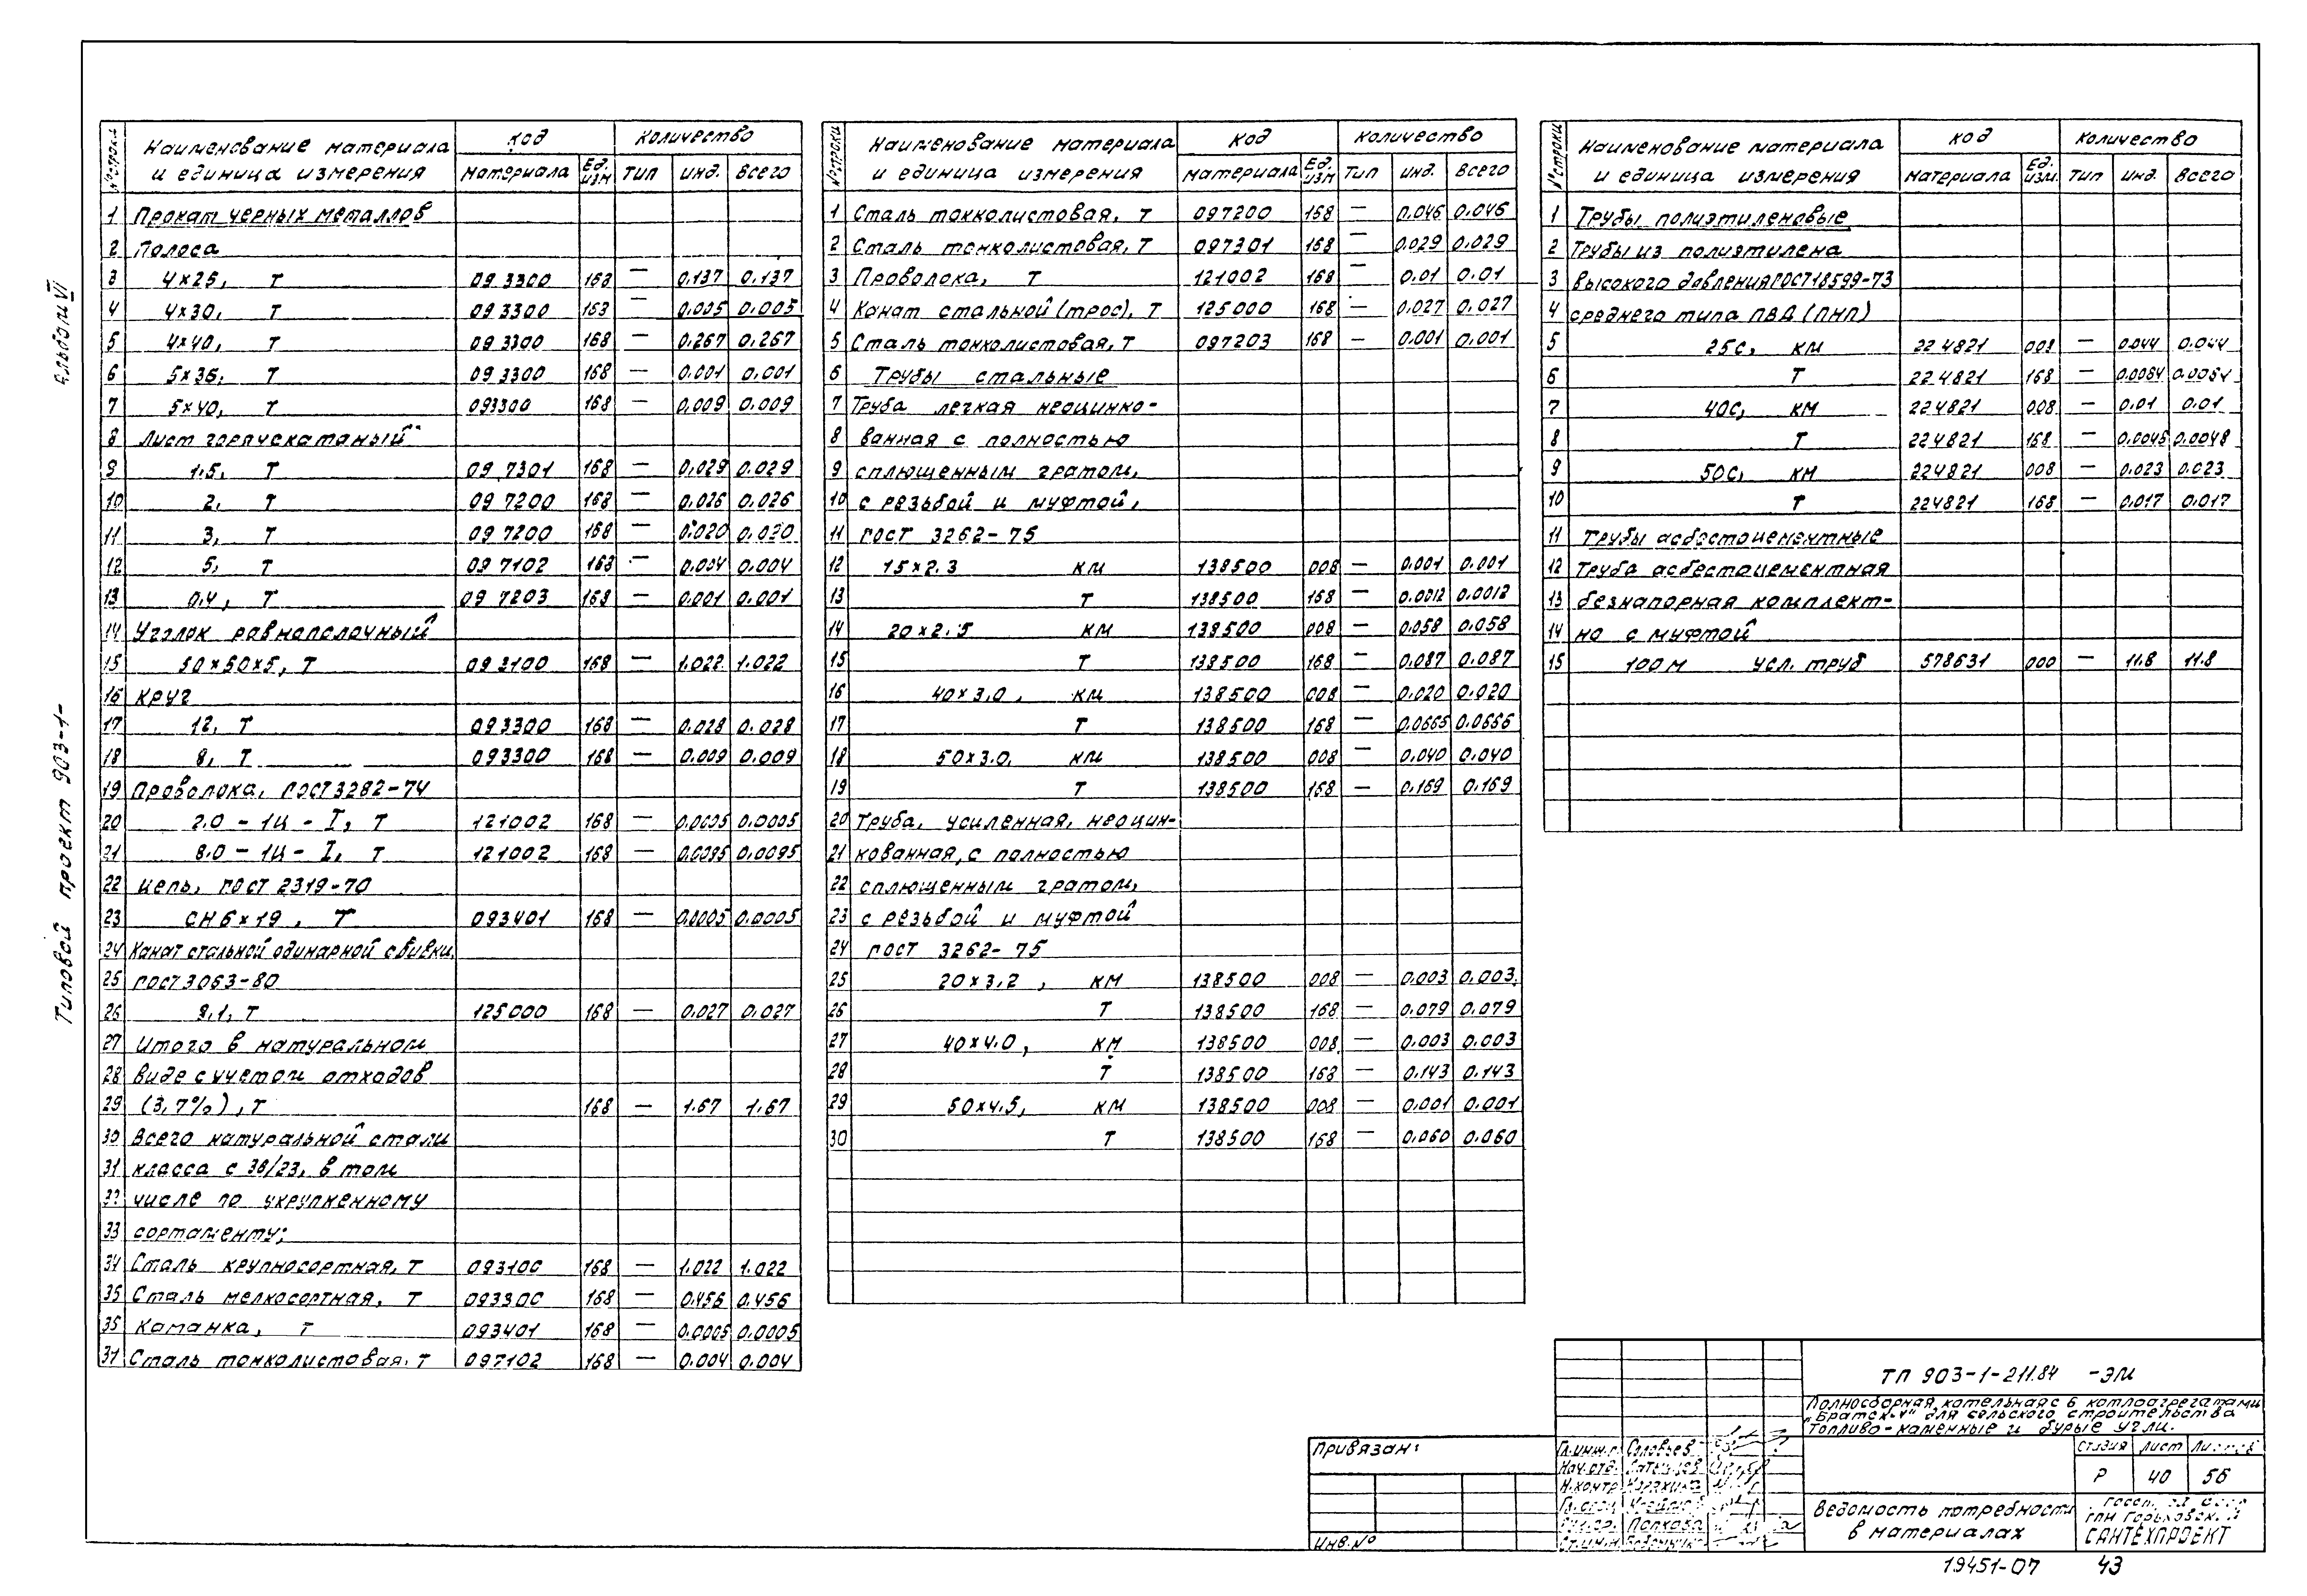 Альбом VI
Типовой проект 903-1-
№ строки Наименование материала и единица измерения Код Количество
материала Ед. изм тип инд. всего
1 Прокат черных металлов
2 Полоса
3 4×25, Т 093300 168 — 0.137 0.137
4 4×30, Т 093300 168 — 0.005 0.005
5 4×40, Т 093300 168 — 0.267 0.267
6 5×36, Т 093300 168 — 0.001 0.001
7 5×40, Т 093300 168 — 0.009 0.009
8 Лист горячекатаный
9 1.5, Т 097301 168 — 0.029 0.029
10 2, Т 097200 168 — 0.026 0.026
11 3, Т 097200 168 — 0.020 0.020
12 5, Т 097102 168 — 0.004 0.004
13 0.4, Т 097203 168 — 0.001 0.001
14 Уголок равнополочный
15 50×50×5, Т 093100 168 — 1.022 1.022
16 Круг
17 12, Т 093300 168 — 0.028 0.028
18 8, Т 093300 168 — 0.009 0.009
19 Проволока, ГОСТ 3282-74
20 2.0-1Ц-I, Т 121002 168 — 0.0005 0.0005
21 8.0-1Ц-I, Т 121002 168 — 0.0095 0.0095
22 Цепь, ГОСТ 2319-70
23 СН6×19, Т 093401 168 — 0.0005 0.0005
24 Канат стальной одинарной свивки,
25 ГОСТ 3063-80
26 9.1, Т 125000 168 — 0.027 0.027
27 Итого в натуральном
28 виде с учетом отходов
29 (3,7%), Т 168 — 1.67 1.67
30 Всего натуральной стали
31 класса с 38/23, в том
32 числе по укрупненному
33 сортаменту;
34 Сталь крупносортная, Т 093100 168 — 1.022 1.022
35 Сталь мелкосортная, Т 093300 168 — 0.456 0.456
35 Катанка, Т 093401 168 — 0.0005 0.0005
37 Сталь тонколистовая, Т 097102 168 — 0.004 0.004
№ строки Наименование материала и единица измерения Код Количество
материала Ед. изм тип инд. всего
1 Сталь тонколистовая, Т 097200 168 — 0.046 0.046
2 Сталь тонколистовая, Т 097301 168 — 0.029 0.029
3 Проволока, Т 121002 168 — 0.01 0.01
4 Канат стальной (трос), Т 125000 168 — 0.027 0.027
5 Сталь тонколистовая, Т 097203 168 — 0.001 0.001
6 Трубы стальные
7 Труба легкая неоцинко-
8 ванная с полностью
9 сплющенным гратом,
10 с резьбой и муфтой,
11 ГОСТ 3262-75
12 15×2.3 км 138500 008 — 0.001 0.001
13 Т 138500 168 — 0.0012 0.0012
14 20×2.5 км 138500 008 — 0.058 0.058
15 Т 138500 168 — 0.087 0.087
16 40×3.0, км 138500 008 — 0.020 0.020
17 Т 138500 168 — 0.0665 0.0666
18 50×3.0, км 138500 008 — 0.040 0.040
19 Т 138500 168 — 0.169 0.169
20 Труба, усиленная, неоцин-
21 кованная, с полностью
22 сплющенным гратом,
23 с резьбой и муфтой
24 ГОСТ 3262-75
25 20×3,2, км 138500 008 — 0.003 0.003
26 Т 138500 168 — 0.079 0.079
27 40×4.0, км 138500 008 — 0.003 0.003
28 Т 138500 168 — 0.143 0.143
29 50×4.5, км 138500 008 — 0.001 0.001
30 Т 138500 168 — 0.060 0.060
№ строки Наименование материала и единица измерения Код Количество
материала Ед. изм. тип инд. всего
1 Трубы полиэтиленовые
2 Трубы из полиэтилена
3 высокого давления ГОСТ 18599-73
4 среднего типа ПВД (ПНП)
5 25С, км 224821 008 — 0.044 0.044
6 Т 224821 168 — 0.0084 0.0084
7 40С, км 224821 008 — 0.01 0.01
8 Т 224821 168 — 0.0048 0.0048
9 50С, км 224821 008 — 0.023 0.023
10 Т 224821 168 — 0.017 0.017
11 Трубы асбестоцементные
12 Труба асбестоцементная
13 безнапорная комплект-
14 но с муфтой
15 100м усл. труб 578631 000 — 11.8 11.8
ТП 903-1-211.84 -ЭМ
Полносборная котельная с 6 котлоагрегатами
"Братск-1" для сельского строительства
Топливо-каменные и бурые угли.
Стадия Лист Листов
Р 40 56
Ведомость потребности
в материалах
ГПИ Горьковский
САНТЕХПРОЕКТ
Привязан:
Инв. №
Гл. инж. Соловьев
Нач. отд.
Н. контр.
19451-07 43